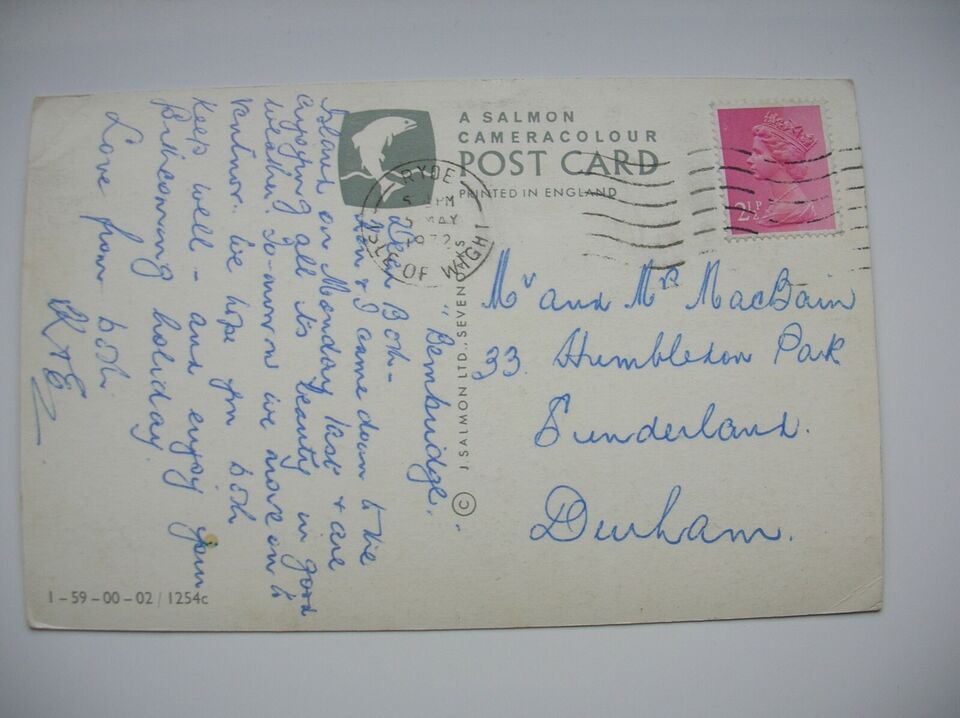 A SALMON
CAMERACOLOUR
POST CARD
PRINTED IN ENGLAND
RYDE
PM
MAY
1972
ISLE OF WIGHT
2½P
"Bembridge."
Dear Both -
& I came down to the
Island on Monday last & are
enjoying all its beauty in good
weather. To-morrow we move on to
Ventnor. We hope you both
keep well - and enjoy your
forthcoming holiday.
Love from both
Mr and Mrs MacBain
33 Humbledon Park
Sunderland.
Durham.
© J. SALMON LTD., SEVENOAKS
1-59-00-02/1254c